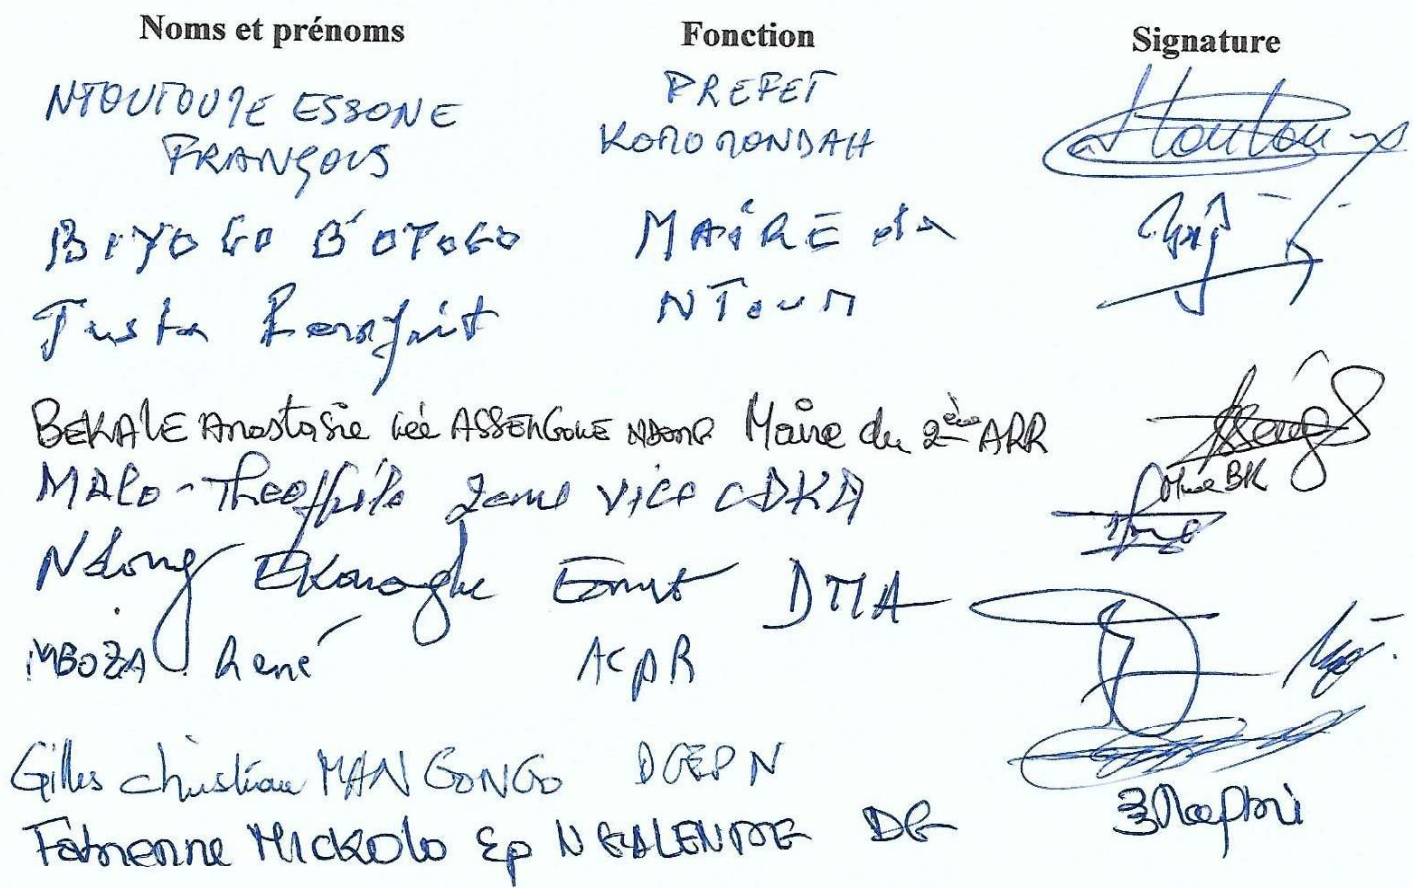 Noms et prénoms Fonction Signature
NTOUTOUME ESSONE PREFET
FRANÇOIS KOMO MONDAH
BIYOGO B'OTOGO MAIRE de
Juste Parfait NToum
BEKALE Anastasie née ASSENGONE NDONG Maire du 2ème ARR
Mme BK
MALO-Theophile 2eme Vice CDKM
Ndong Ekouaghe Ernest DTTA
MBOZA René ACPR
Gilles christian MANGONGO DGEPN
Fabienne MICKOLO Ep NGALENDJE DG